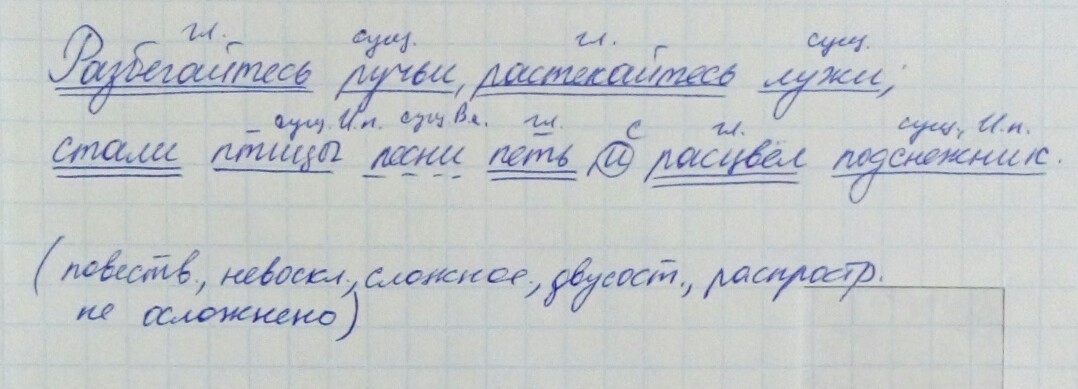 гл. сущ. гл. сущ.
Разбегайтесь ручьи, растекайтесь лужи;
сущ. И.п. сущ. В.п. гл. с гл. сущ., И.п.
стали птицы песни петь и расцвёл подснежник.
(повеств., невоскл., сложное, двусост., распростр.
не осложнено)